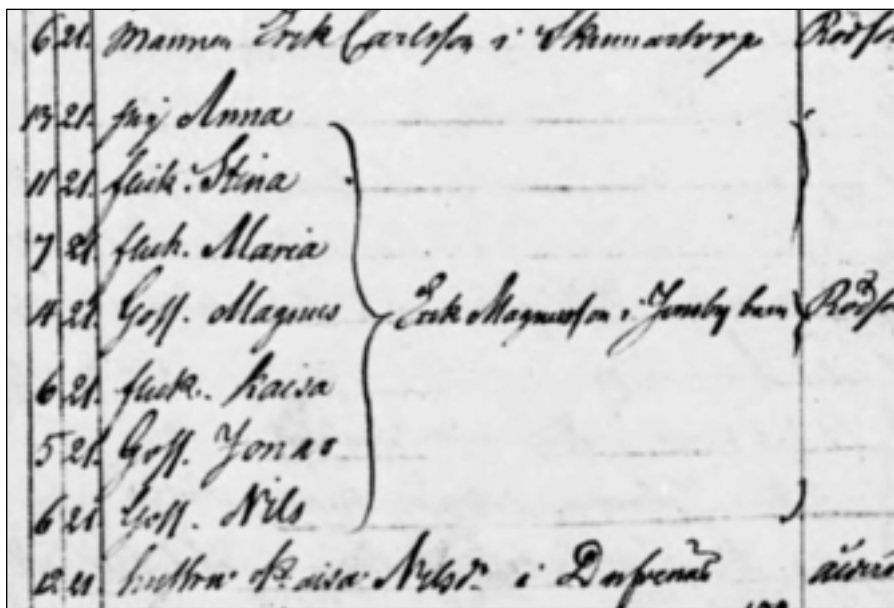 6 21. mannen Erik Carlsson i Skinnartorp Rödso
13 21. pig Anna
11 21. flick. Stina
7 21. flick. Maria
4 21. Goss. Magnus Erik Magnusson i Jonsby barn Rödso
6 21. flick. Kaisa
5 21. Goss. Jonas
6 21. Goss. Nils
12 21 hustru Kaisa Nilsdr i